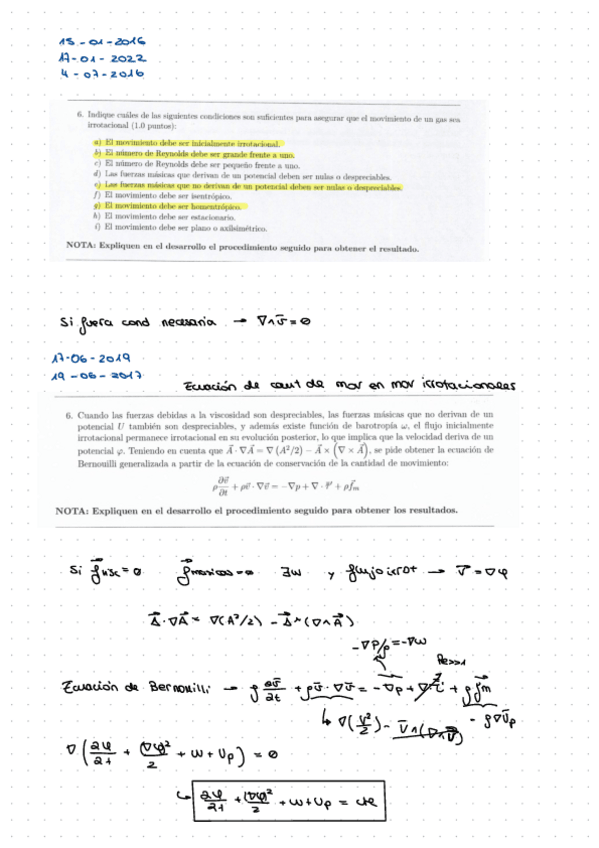 15-01-2016
17-01-2022
4-07-2016
6. Indique cuáles de las siguientes condiciones son suficientes para asegurar que el movimiento de un gas sea
irrotacional (1.0 puntos):
a) El movimiento debe ser inicialmente irrotacional.
b) El número de Reynolds debe ser grande frente a uno.
c) El número de Reynolds debe ser pequeño frente a uno.
d) Las fuerzas másicas que derivan de un potencial deben ser nulas o despreciables.
e) Las fuerzas másicas que no derivan de un potencial deben ser nulas o despreciables.
f) El movimiento debe ser isentrópico.
g) El movimiento debe ser homentrópico.
h) El movimiento debe ser estacionario.
i) El movimiento debe ser plano o axilsimétrico.
NOTA: Expliquen en el desarrollo el procedimiento seguido para obtener el resultado.
Si fuera cond necesaria → ∇∧v̄ = 0
17-06-2019
19-06-2017
Ecuación de cant de mov en mov irrotacionales
6. Cuando las fuerzas debidas a la viscosidad son despreciables, las fuerzas másicas que no derivan de un
potencial U también son despreciables, y además existe función de barotropía ω, el flujo inicialmente
irrotacional permanece irrotacional en su evolución posterior, lo que implica que la velocidad deriva de un
potencial φ. Teniendo en cuenta que A⃗ · ∇A⃗ = ∇(A²/2) − A⃗ × (∇ × A⃗), se pide obtener la ecuación de
Bernouilli generalizada a partir de la ecuación de conservación de la cantidad de movimiento:
ρ ∂v⃗/∂t + ρv⃗ · ∇v⃗ = −∇p + ∇ · τ̄' + ρf⃗m
NOTA: Expliquen en el desarrollo el procedimiento seguido para obtener los resultados.
Si f⃗visc = 0 f⃗masicas = 0 ∃w y flujo irrot → v⃗ = ∇φ
A⃗ · ∇A⃗ = ∇(A²/2) − A⃗ ∧ (∇∧A⃗)
−∇P/ρ = −∇w
Re>>1
Ecuación de Bernouilli → ρ ∂v̄/∂t + ρv̄ · ∇v̄ = −∇p + ∇·τ̄ + ρf⃗m
↳ ∇(v²/2) − v̄∧(∇∧v̄) −ρ∇Up
∇(∂φ/∂t + (∇φ)²/2 + w + Up) = 0
↳ ∂φ/∂t + (∇φ)²/2 + w + Up = cte